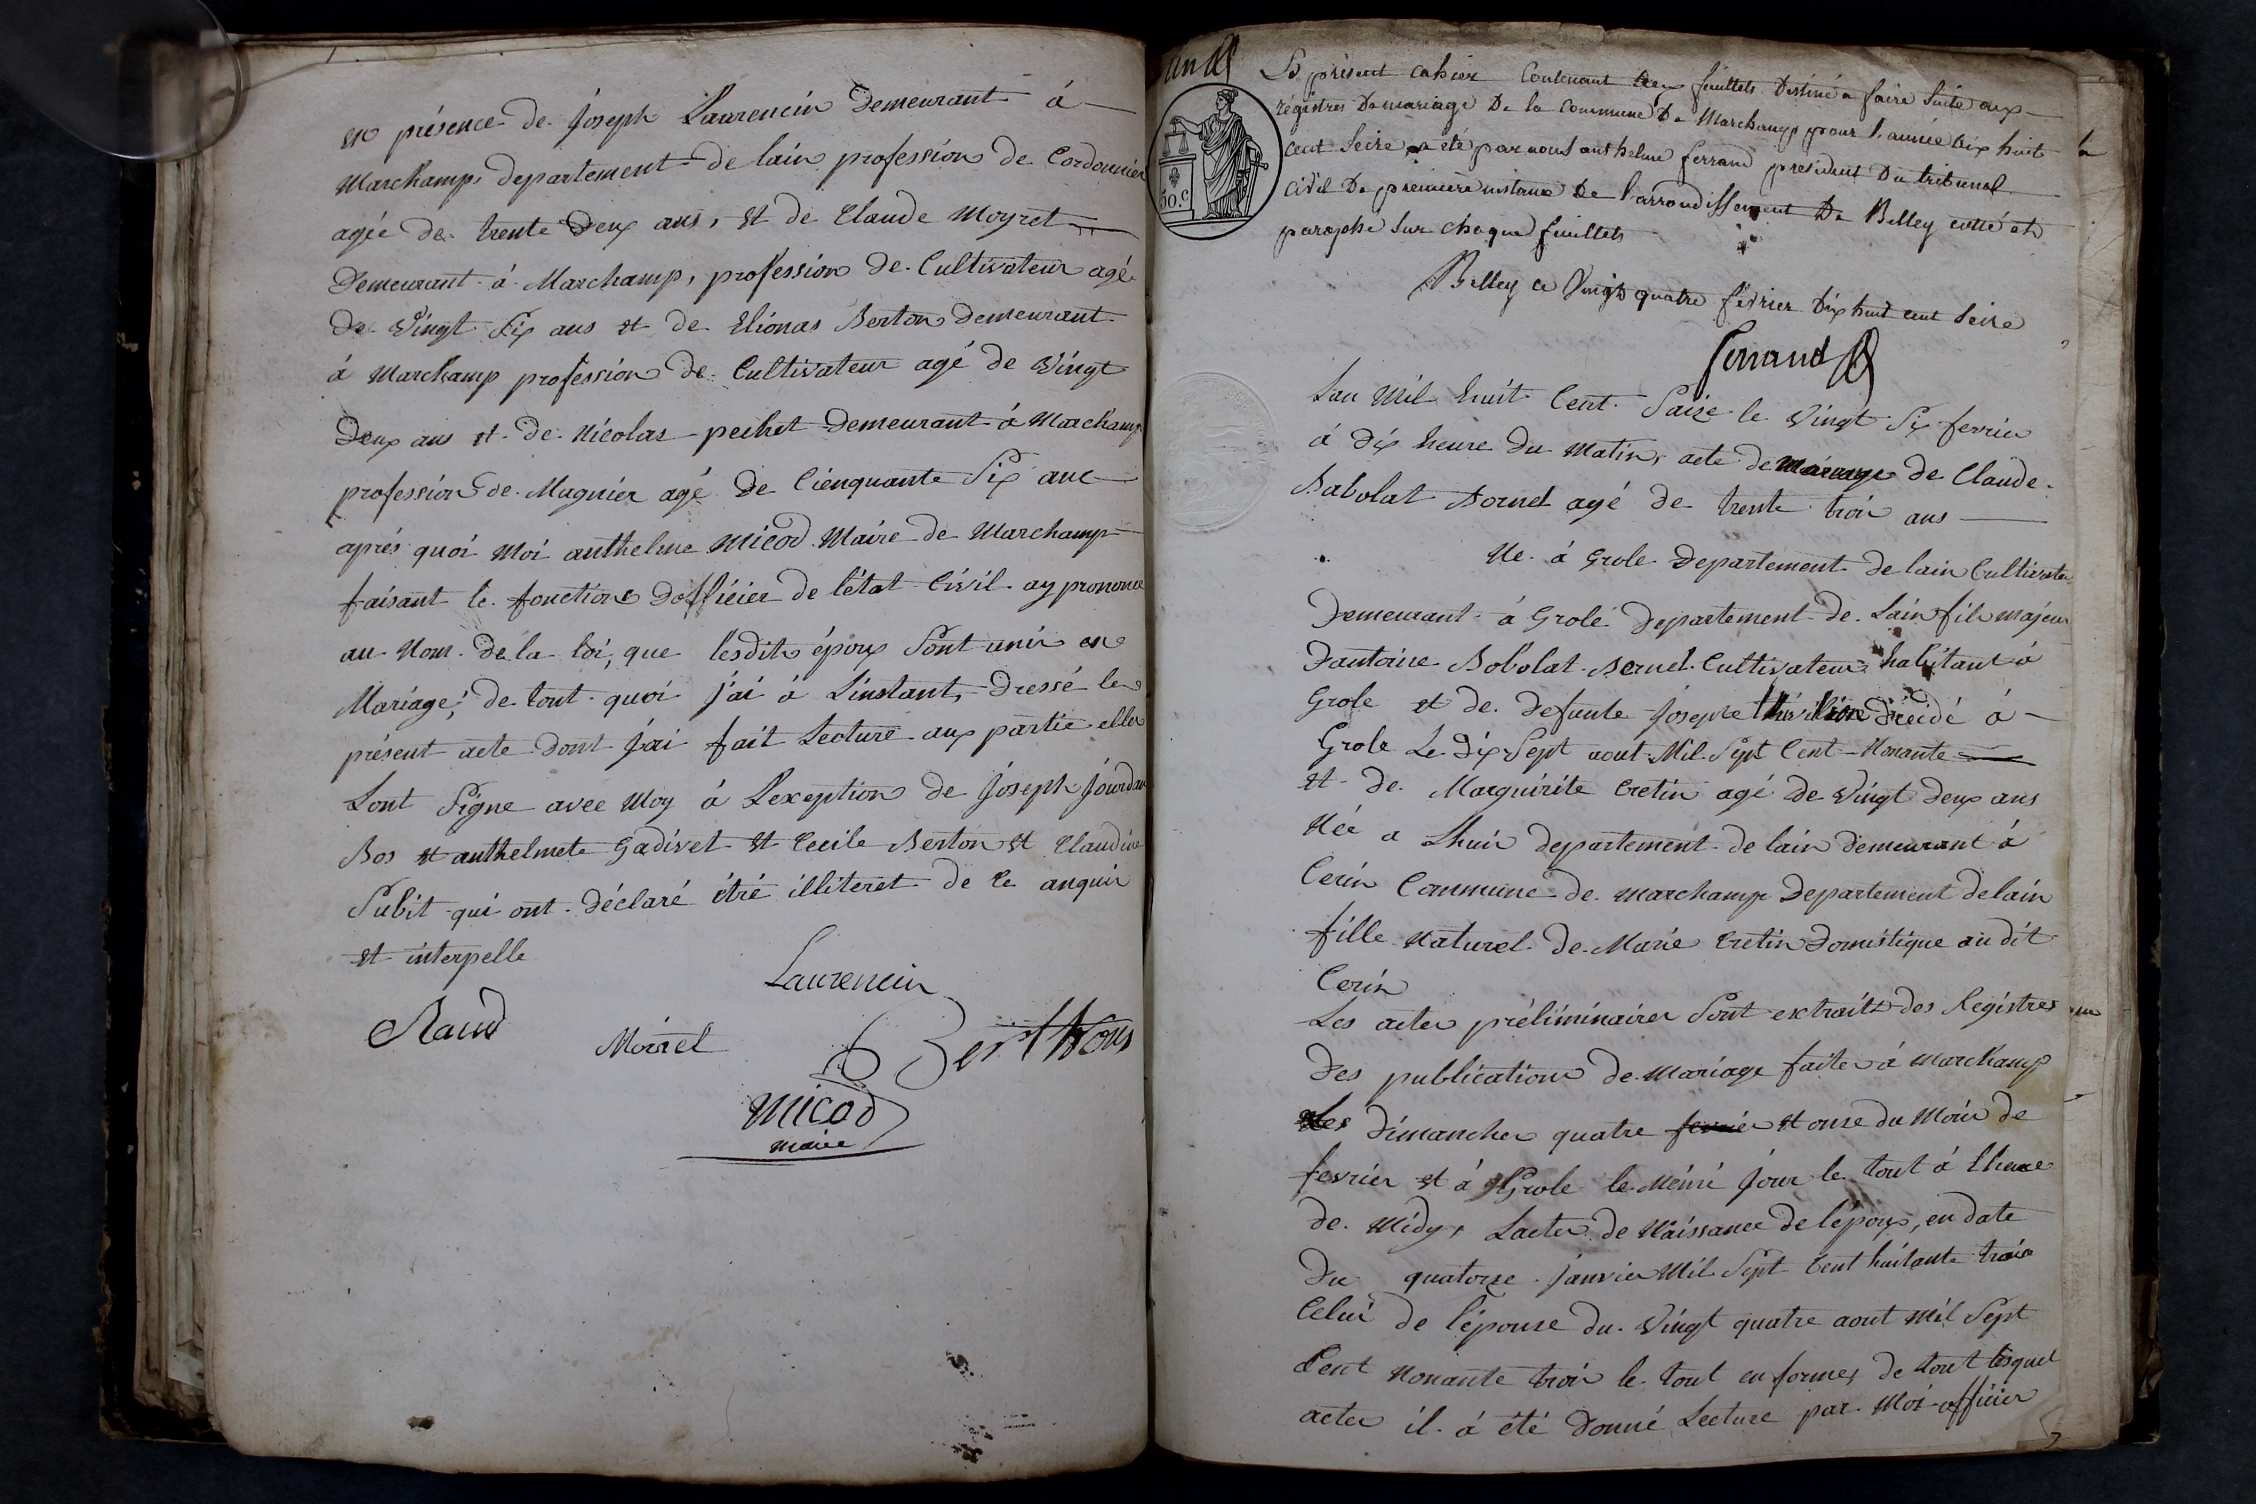 en présence de Joseph Laurencin demeurant à
Marchamp, departement de lain profession de Cordonnier
agée de trente deux ans, et de Claude Moyret
demeurant à Marchamp, profession de Cultivateur agé
de Vingt Six ans et de Elionas Berton demeurant
à Marchamp profession de Cultivateur agé de Vingt
deux ans et de Nicolas pechet demeurant à Marchamp
profession de Magnier agé de Cienquante Six anc
aprés quoi Moi anthelme Micod Maire de Marchamp
faisant le fonctions dofficier de létat Civil ay prononce
au Nom de la loi, que lesdits époux Sont unir en
Mariage; de tout quoi j'ai à Linstant, dressé le
présent acte dont j'ai fait Lecture aux partie elles
Lont Signe avec Moy à Lexeption de Joseph Jourdan
Bos et anthelmete Gadivet et Cecile Berton et Claudine
Subit qui ont déclaré étré illiteret de ce anquir
et interpelle
Laurencin
Raud
Moirel
Berthons
Micod
maire
50.c
Le présent cahier Contenant deux feuillets Destiné a faire Suite aux
régistres De mariage De la Commune De Marchamp pour l'année dix huit
cent Seize a été par nous anthelme ferrand president Du tribunal
Civil De premiere instance De l'arrondissement De Belley cotté et
paraphé Sur chaque feuillets
Belley ce Vingt quatre février Dix huit cent Seize
ferrand
Lan Mil huit Cent Saize le Vingt Six fevrier
à dix heure du Matin, acte de Mariage de Claude
Babolat Bornet agé de trente troir ans
Ne à Grole Departement de lain Cultivateur
demeurant à Grolé Departement de Lain fils majeur
Dantoine Bobolat Bernet Cultivateur habitant à
Grole et de defunte Josepte décidé à
Grole Le dix Sept aout Mil Sept Cent Nonante
et de Marguirite Cretin agé de Vingt deux ans
Née a Lhuir departement de lain demeurant à
Cerin Commune de Marchamp Departement de lain
fille Naturel de Marie Cretin Domistique au dit
Cerin
Les actes préliminaires Sont extraits des Registres
des publications de Mariage faites à Marchamp
Les dimanches quatre fevrier et onze du Mois de
fevrier et à Grole le Mémé Jour le tout à Lheure
de Midy, Lactes de Naissance de lépoux, en date
du quatorze janvier Mil Sept Cent huitante trois
Celui de l'épouse du Vingt quatre aout Mil Sept
Cent Nonante troir le tout en forme, de tout lesquel
actes il à été donné Lecture par Moi officier